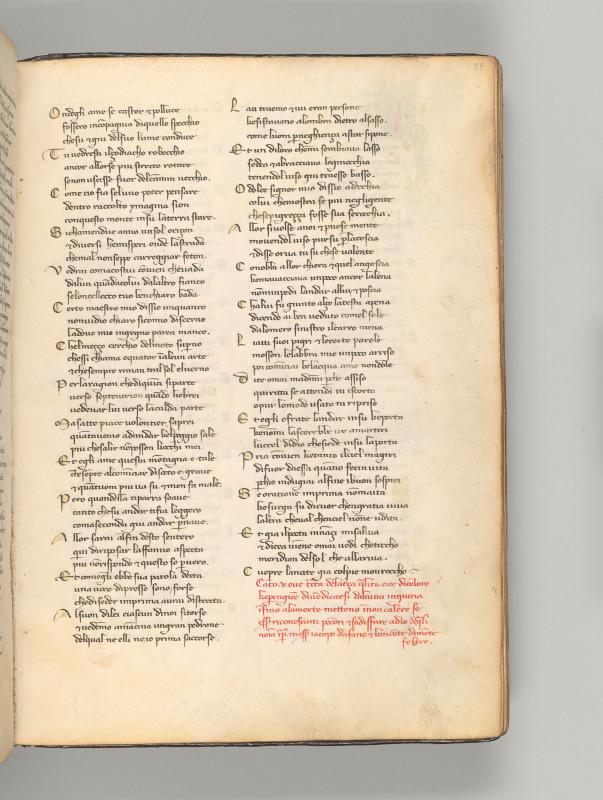 39
Ondegli ame se castor & polluce
fossero incompagnia diquello specchio
chesu & giu delsuo lume conduce
Tu vedresti ilçodiacho robecchio
ancor allorse piu stretto rotare
senonuscisse fuor delcamin vecchio.
Come cio sia seluuo poter pensare
dentro raccolto ymagina sion
conquesto monte insu laterra stare.
Sichamendue anno unsol oriçon
& diuersi hemisperi onde lastrada
chemal nonseppe carreggiar feton.
Vedrai comacostui convien chevada
dallun quãdacolui dalaltro fianco
selontellecto tuo benchiaro bada
Certo maestro mio dissio unquanco
nonuidio chiaro sicomio discerno
ladoue mio ingegno parea manco.
Chelmeçço cerchio delmoto superno
chessi chiama equator inalcun arte
& chesempre riman tralsol eluerno
Per laragion chedi quinci siparte
uerso septentrion quãdo liebrei
vedeuan lui uerso lacalda parte
Ma satte piace volontier saprei
quantauemo adandar chelpoggio sale
piu chesalir nõposson liocchi mei
Et egli ame questa mõtagna e tale
chesempre alcominciar disocto e graue
& quantuom piu ua su & men fa male.
Pero quandella tiparra soaue
tanto chesu andar tifia leggero
comaseconda giu andar pnaue.
Allor sarai alfin desto sentero
quiui diriposar laffanno aspecta
piu nõrispondo & questo so puero.
Et comegli ebbe sua parola decta
una uoce dipresso sono forse
chedi seder imprima aurai distrecta.
Alsuon dilei ciascun dinoi sitorse
& uedemo amancina ungran pedrone
delqual ne elli ne io prima saccorse.
La ci traemo & iui eran persone
chesistauano alombra dietro alsasso.
come luom pneghiença astar sipone.
Et un diloro chemi sembiaua lasso
sedea & abracciaua leginocchia
tenendol uiso giu traesse basso.
O dolce signor mio dissio adocchia
colui chemostra se piu negligente
chesepigreçça fosse sua serocchia.
Allor siuolse anoi & puose mente
mouendol uiso pur su placoscia
& disse or ua tu su chese valente
Conobbi allor chiera & quel angoscia
chemauacciaua unpoco ancor lalena
nonmimpedi landar allui & poscia
Challui fu giunto alço latesta apena
dicendo ai ben veduto comel sole
dalomero sinistro ilcarro mena
Li atti suoi pigri & lecorte parole
mosson lelabbra mie unpoco arriso
poi cominciai belacqua amo nondole
Di te omai madimi pche assiso
quiritta se attendi tu iscorta
opur lomodo usato ta ripriso
Et egli ofrate landar insu cheporta
luccel didio chesiede insu laporta
Pria convien chetanto ilciel magiri
difuor daessa quanto feci inuita
pchio indugiai alfine ibuon sospiri
Se oratione imprima nõmaita
chesurga su dicuor chengratia uiua
laltra cheual chenciel nõne udita.
Et gia ilpoeta inãçi misaliua
& dicea uiene omai uedi chetoccho
meridian delsol & che allariua.
Cuopre lanocte gia colpie morrocho :
Cãto .v. oue
ifino alamorte mettono
feltro.